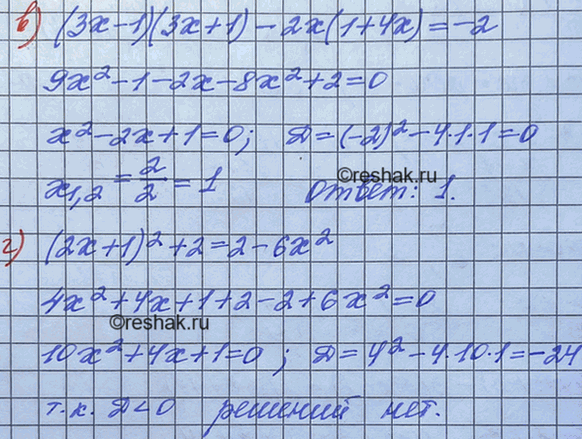 в) (3x-1)(3x+1)-2x(1+4x)=-2
9x²-1-2x-8x²+2=0
x²-2x+1=0; D=(-2)²-4·1·1=0
©reshak.ru
x₁,₂=2/2=1 Ответ: 1.
г) (2x+1)²+2=2-6x²
4x²+4x+1+2-2+6x²=0
©reshak.ru
10x²+4x+1=0; D=4²-4·10·1=-24
т.к. D<0 решений нет.